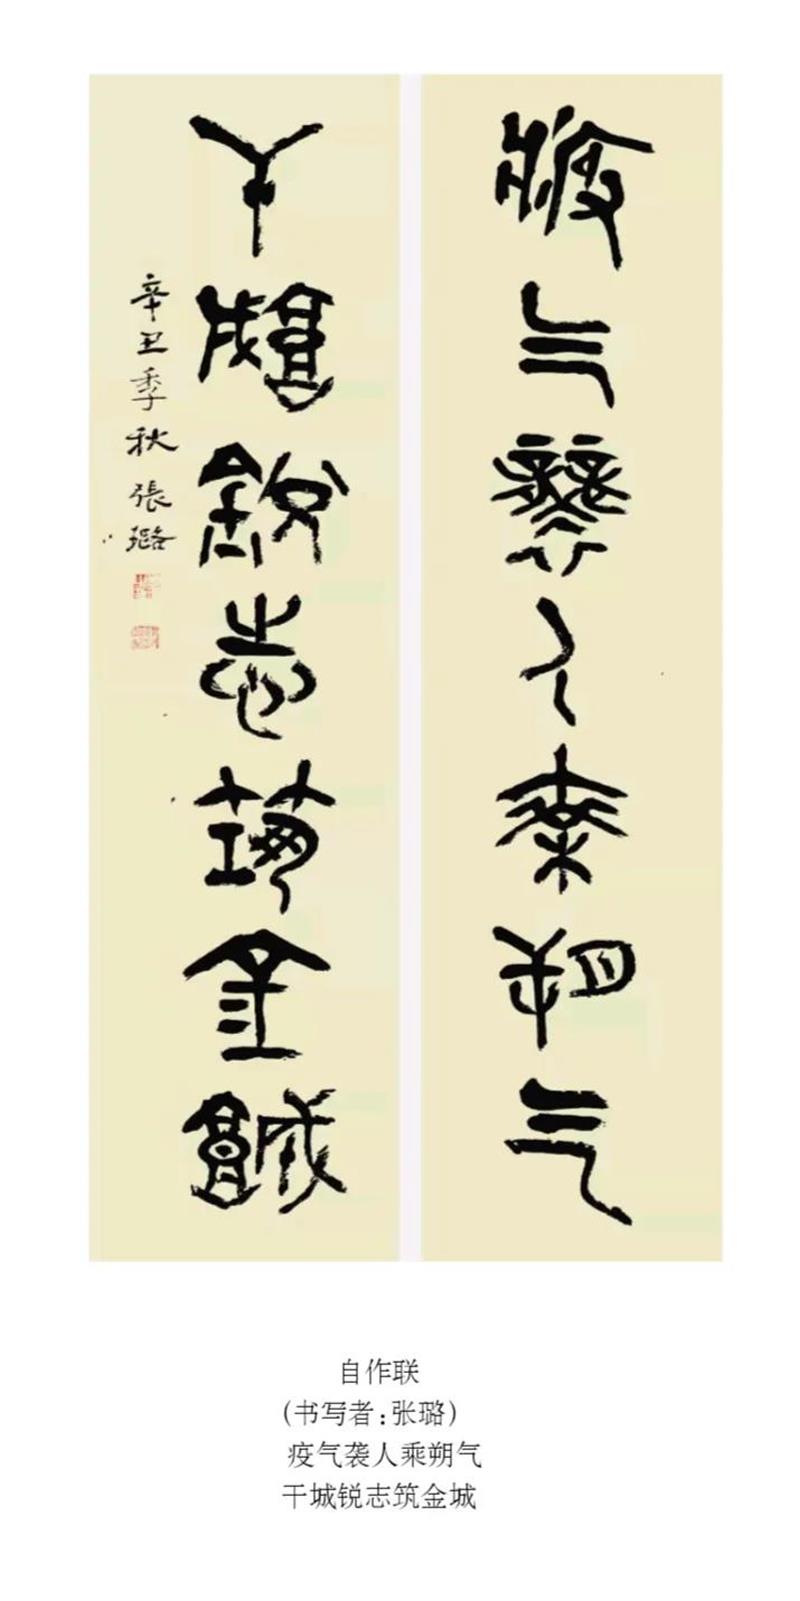 疫气袭人乘朔气
干城锐志筑金城
辛丑季秋 張璐
自作联
(书写者:张璐)
疫气袭人乘朔气
干城锐志筑金城